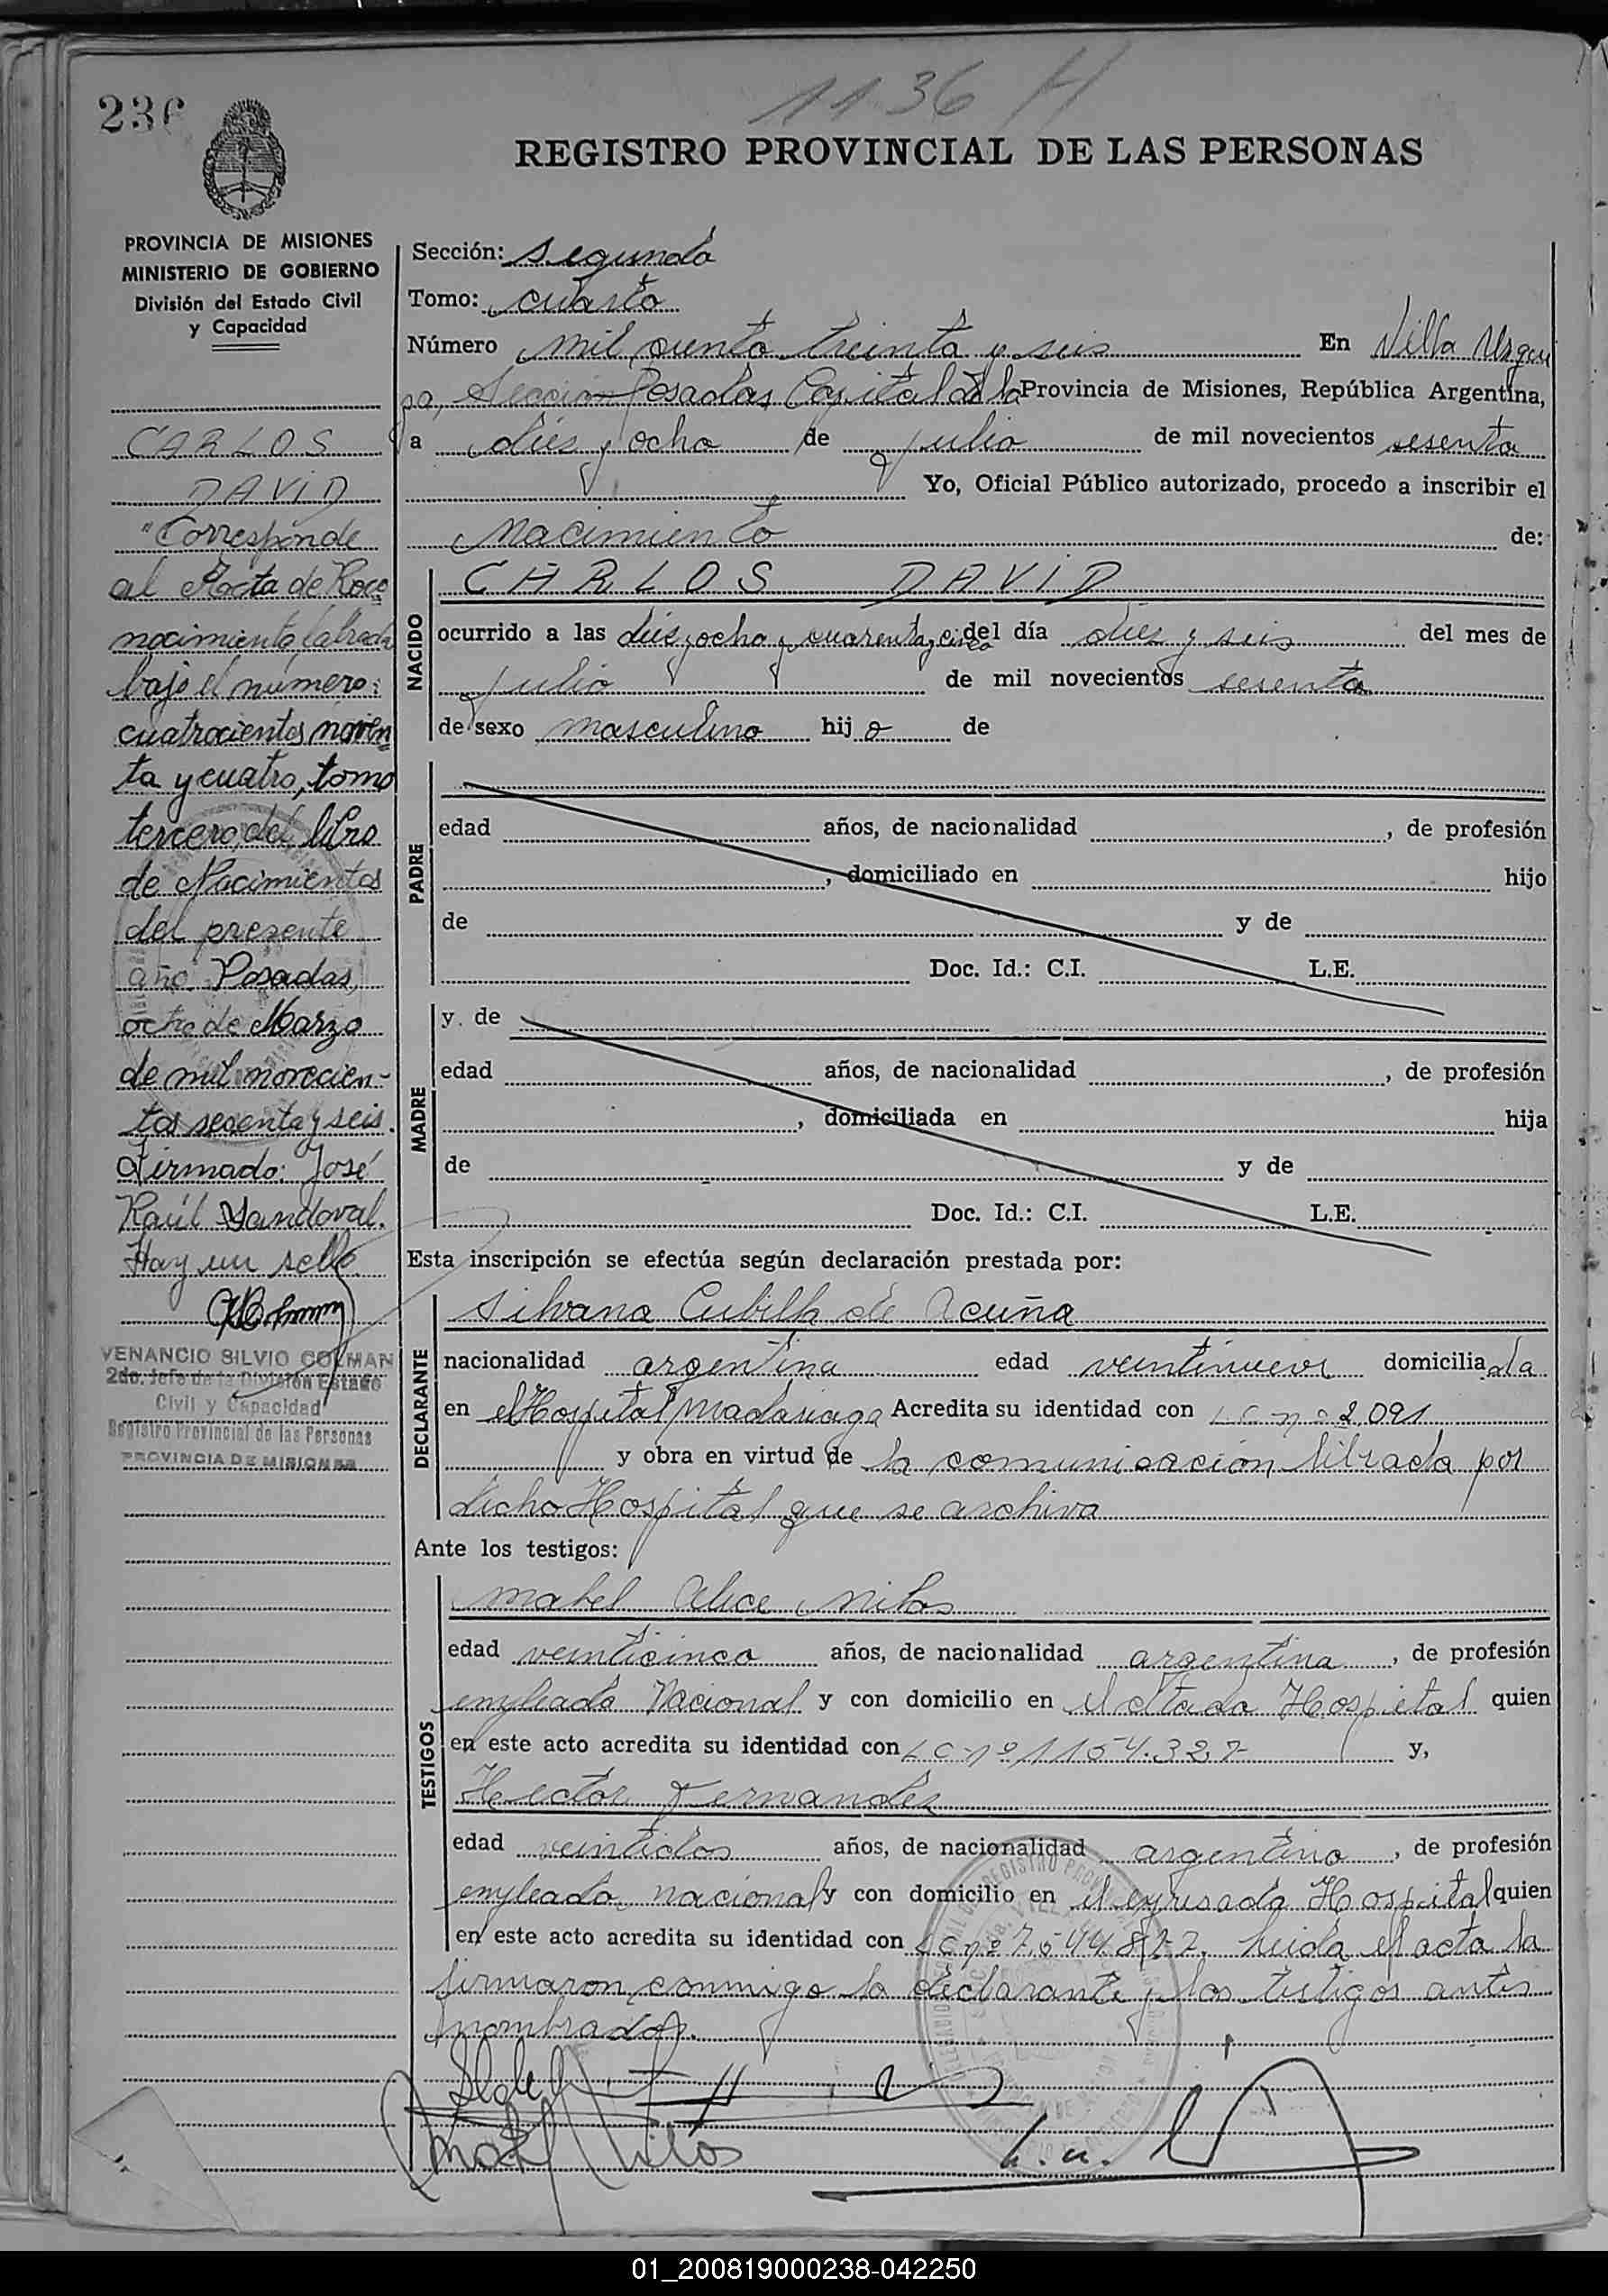 1136 H
236
REGISTRO PROVINCIAL DE LAS PERSONAS
PROVINCIA DE MISIONES
MINISTERIO DE GOBIERNO
División del Estado Civil
y Capacidad
CARLOS
DAVID
"Corresponde
al Acta de Reco
nocimiento labrada
bajo el número:
cuatrocientos noven
ta y cuatro, tomo
tercero, del libro
de Nacimientos
del presente
año. Posadas,
ocho de Marzo
de mil novecien-
tos sesenta y seis.
Firmado: José
Raúl Sandoval.
Hay un sello.
VENANCIO SILVIO COLMAN
2do. Jefe de la División Estado
Civil y Capacidad
Registro Provincial de las Personas
PROVINCIA DE MISIONES
Sección: segunda
Tomo: cuarto
Número mil ciento treinta y seis En Villa Urqui
za, Sección Posadas, Capital de la Provincia de Misiones, República Argentina,
a diés y ocho de julio de mil novecientos sesenta
Yo, Oficial Público autorizado, procedo a inscribir el
Nacimiento de:
NACIDO
CARLOS DAVID
ocurrido a las diés y ocho y cuarenta y cinco del día diés y seis del mes de
julio de mil novecientos sesenta
de sexo masculino hijo de
PADRE
edad años, de nacionalidad , de profesión
, domiciliado en hijo
de y de
Doc. Id.: C.I. L.E.
MADRE
y de
edad años, de nacionalidad , de profesión
, domiciliada en hija
de y de
Doc. Id.: C.I. L.E.
Esta inscripción se efectúa según declaración prestada por:
DECLARANTE
Silvana Cubilla de Acuña
nacionalidad argentina edad veintinueve domiciliada
en el Hospital Madariaga Acredita su identidad con L C nº 2.091
y obra en virtud de la comunicación librada por
dicho Hospital que se archiva
Ante los testigos:
TESTIGOS
Mabel Alice Nilos
edad veinticinco años, de nacionalidad argentina, de profesión
empleada Nacional y con domicilio en el citado Hospital quien
en este acto acredita su identidad con L C nº 1154.327 y,
Hector Fernandez
edad veintidos años, de nacionalidad argentino, de profesión
empleado nacional y con domicilio en el expresado Hospital quien
en este acto acredita su identidad con nº 7.544.877. Leida el acta la
firmaron conmigo la declarante y los testigos antes
nombrados.
01_200819000238-042250